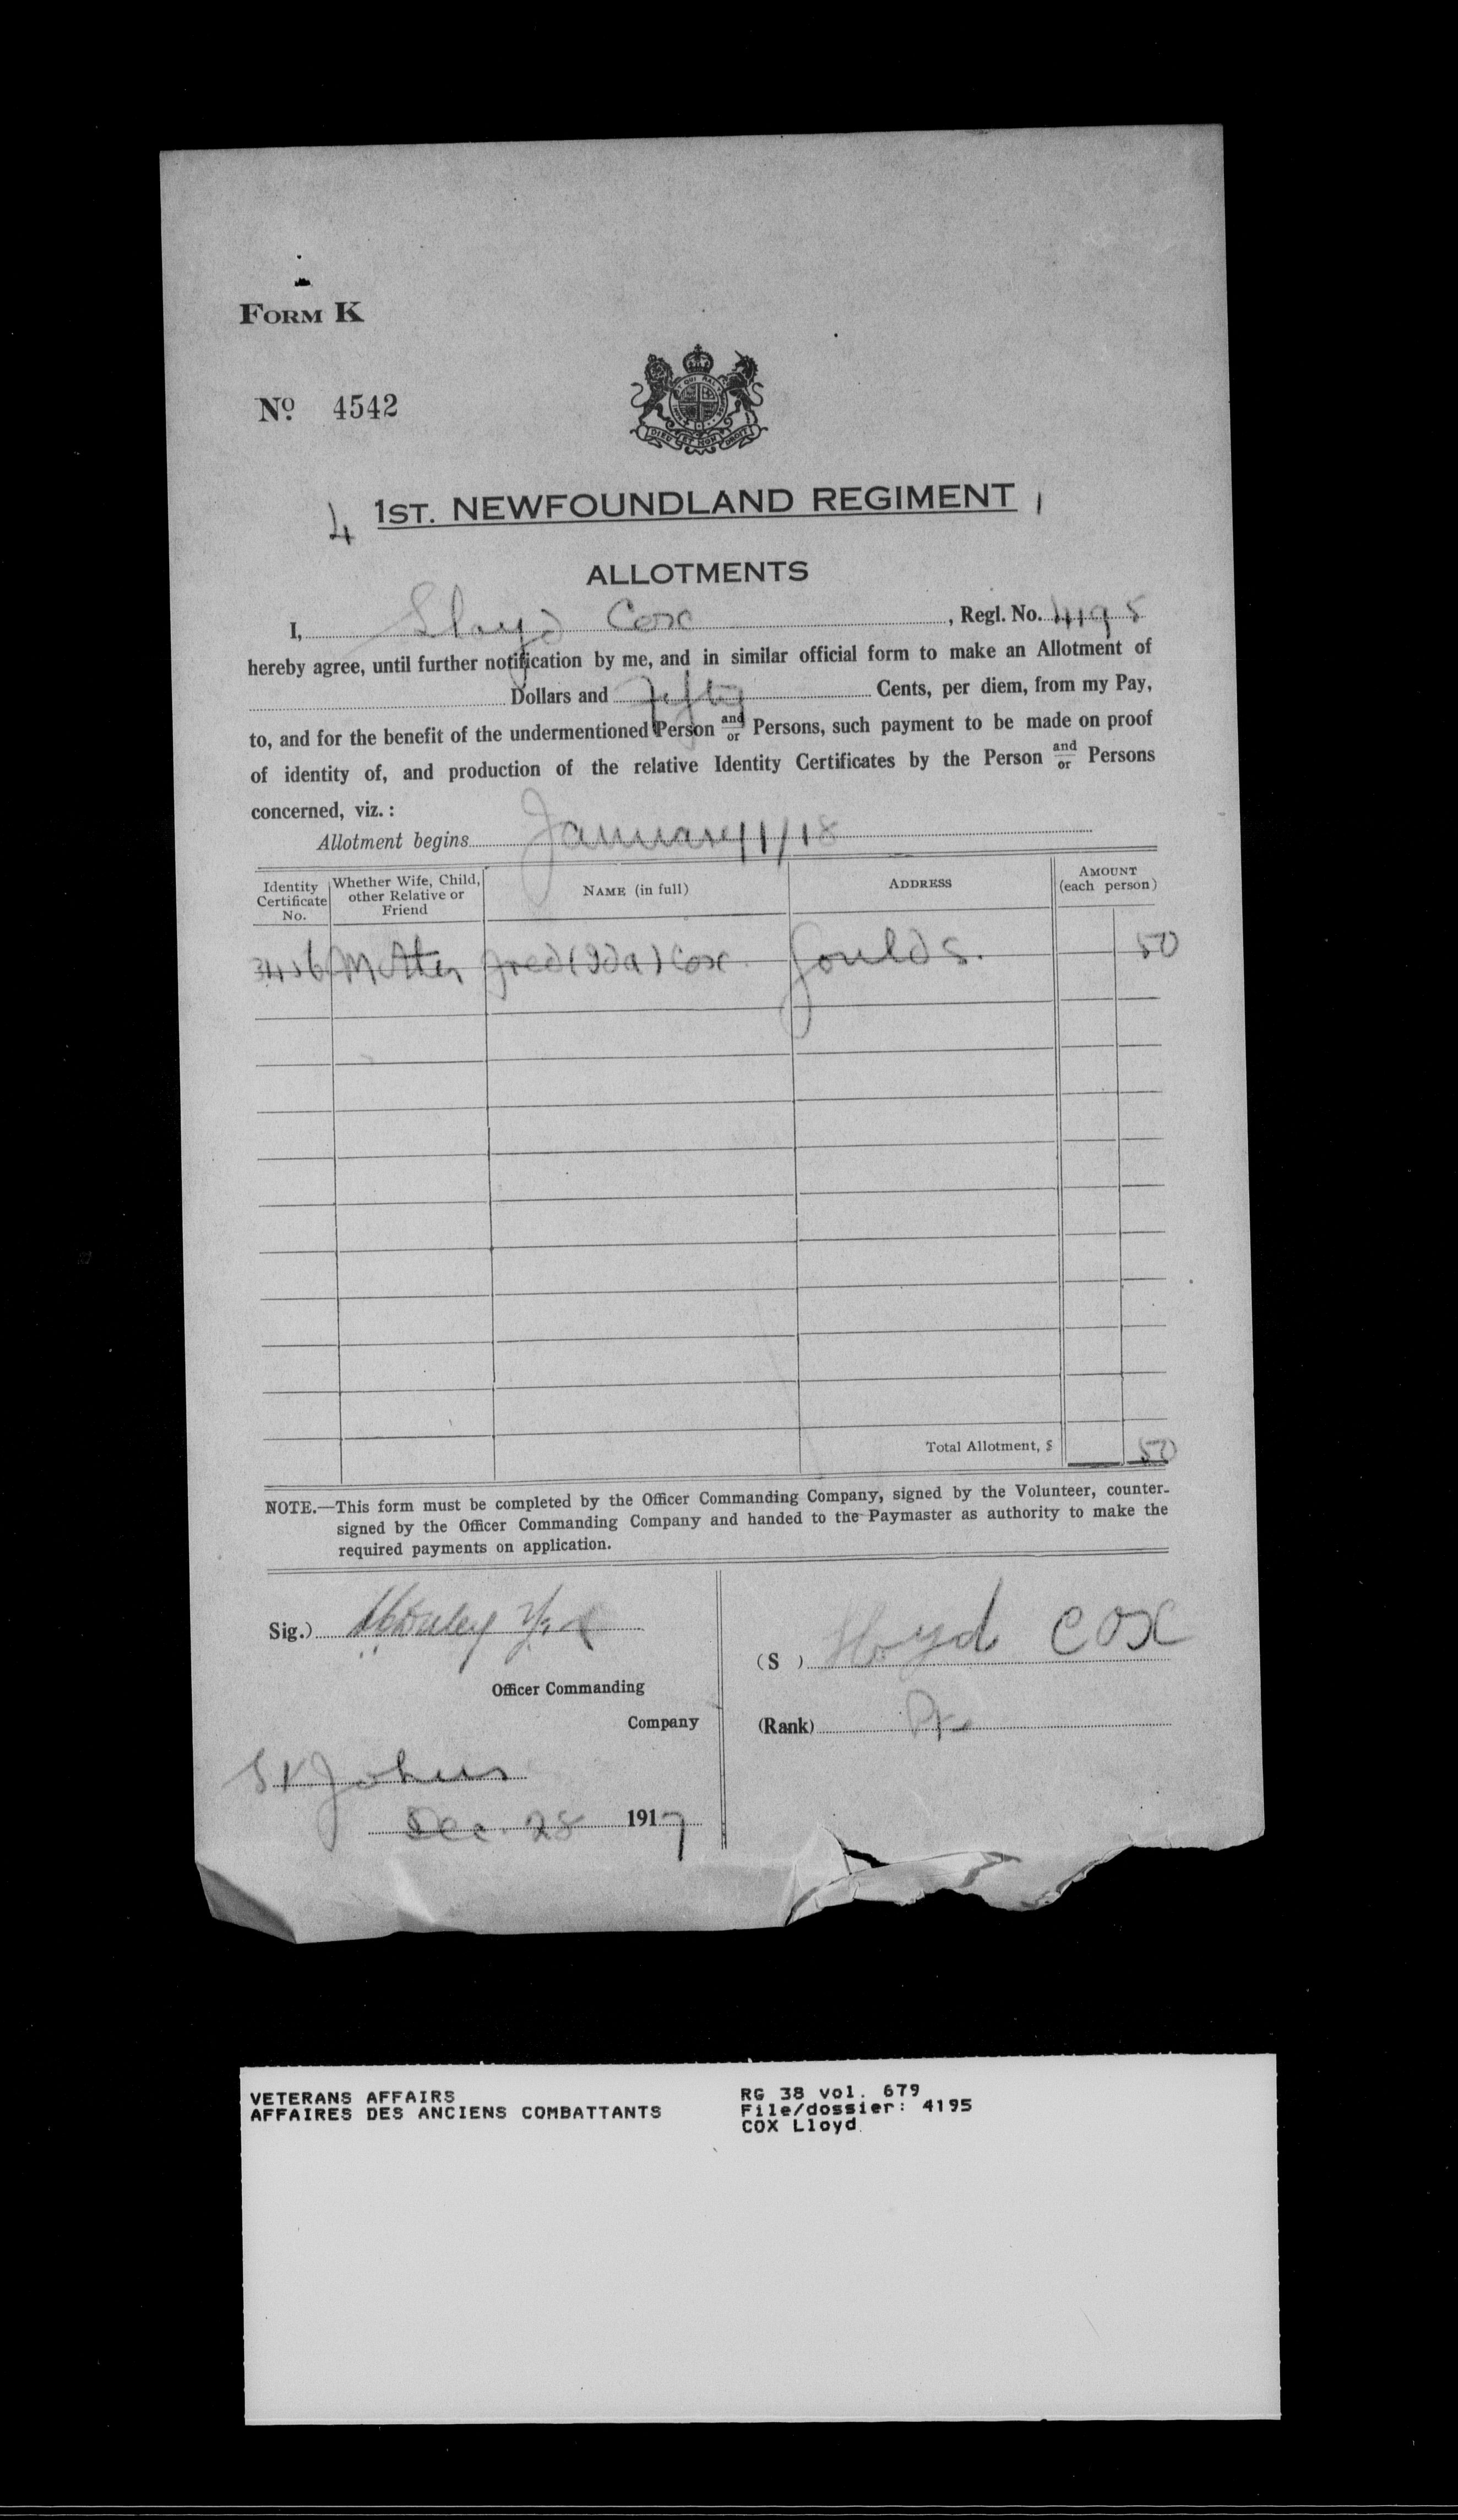 FORM K
No. 4542
4 1ST. NEWFOUNDLAND REGIMENT 1
ALLOTMENTS
I, Lloyd Cox, Regl. No. 4195
hereby agree, until further notification by me, and in similar official form to make an Allotment of
Dollars and Fifty Cents, per diem, from my Pay,
to, and for the benefit of the undermentioned Person and/or Persons, such payment to be made on proof
of identity of, and production of the relative Identity Certificates by the Person and/or Persons
concerned, viz. :
Allotment begins January 1/18
Identity Certificate No. Whether Wife, Child, other Relative or Friend NAME (in full) ADDRESS AMOUNT (each person)
Mother Fred (Ida) Cox Goulds. 50
Total Allotment, $ 50
NOTE.—This form must be completed by the Officer Commanding Company, signed by the Volunteer, counter-
signed by the Officer Commanding Company and handed to the Paymaster as authority to make the
required payments on application.
Sig.)
Officer Commanding
Company
St Johns
Dec. 28 1917
(S ) Lloyd Cox
(Rank) Pte
VETERANS AFFAIRS
AFFAIRES DES ANCIENS COMBATTANTS
RG 38 vol. 679
File/dossier: 4195
COX Lloyd